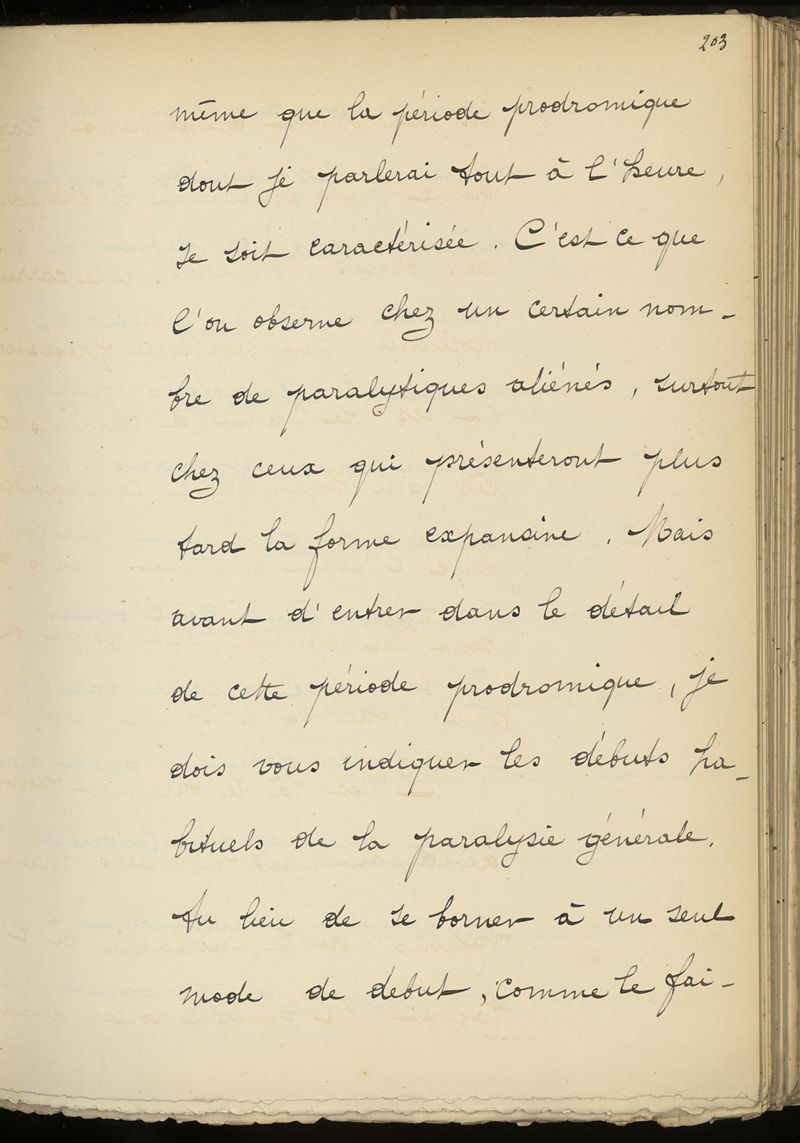 203
même que la période prodromique
dont je parlerai tout à l'heure,
se soit caractérisée. C'est ce que
l'on observe chez un certain nom-
bre de paralytiques aliénés, surtout
chez ceux qui présenteront plus
tard la forme expansive. Mais
avant d'entrer dans le détail
de cette période prodromique, je
dois vous indiquer les débuts ha-
bituels de la paralysie générale.
Au lieu de se borner à un seul
mode de debut, comme le fai-